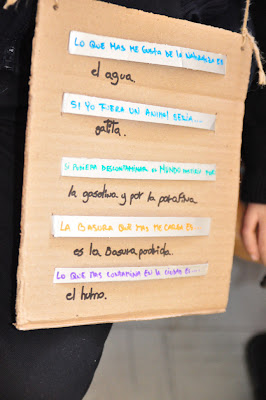 LO QUE MAS ME GUSTA DE LA NATURALEZA ES
el agua.
SI YO FUERA UN ANIMAL SERÍA...
gatita.
SI PUDIERA DESCONTAMINAR EL MUNDO POR
la gasolina y por la parafina.
LA BASURA QUE MAS ME CARGA ES...
es la Basura podrida.
LO QUE MAS CONTAMINA EN LA CIUDAD ES...
el humo.